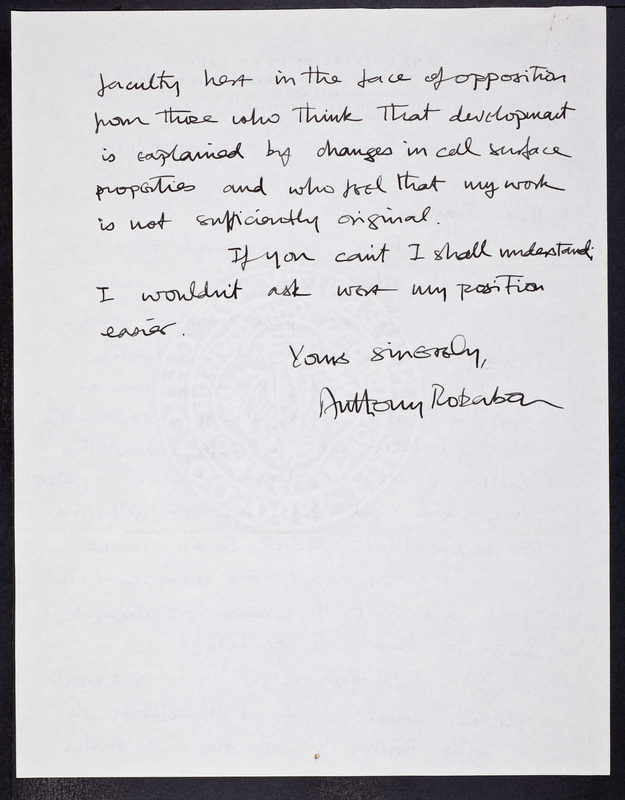 faculty here in the face of opposition
from those who think that development
is explained by changes in cell surface
properties and who feel that my work
is not sufficiently original.
If you can't I shall understand;
I wouldn't ask were my position
easier.
Yours sincerely,
Anthony Robertson